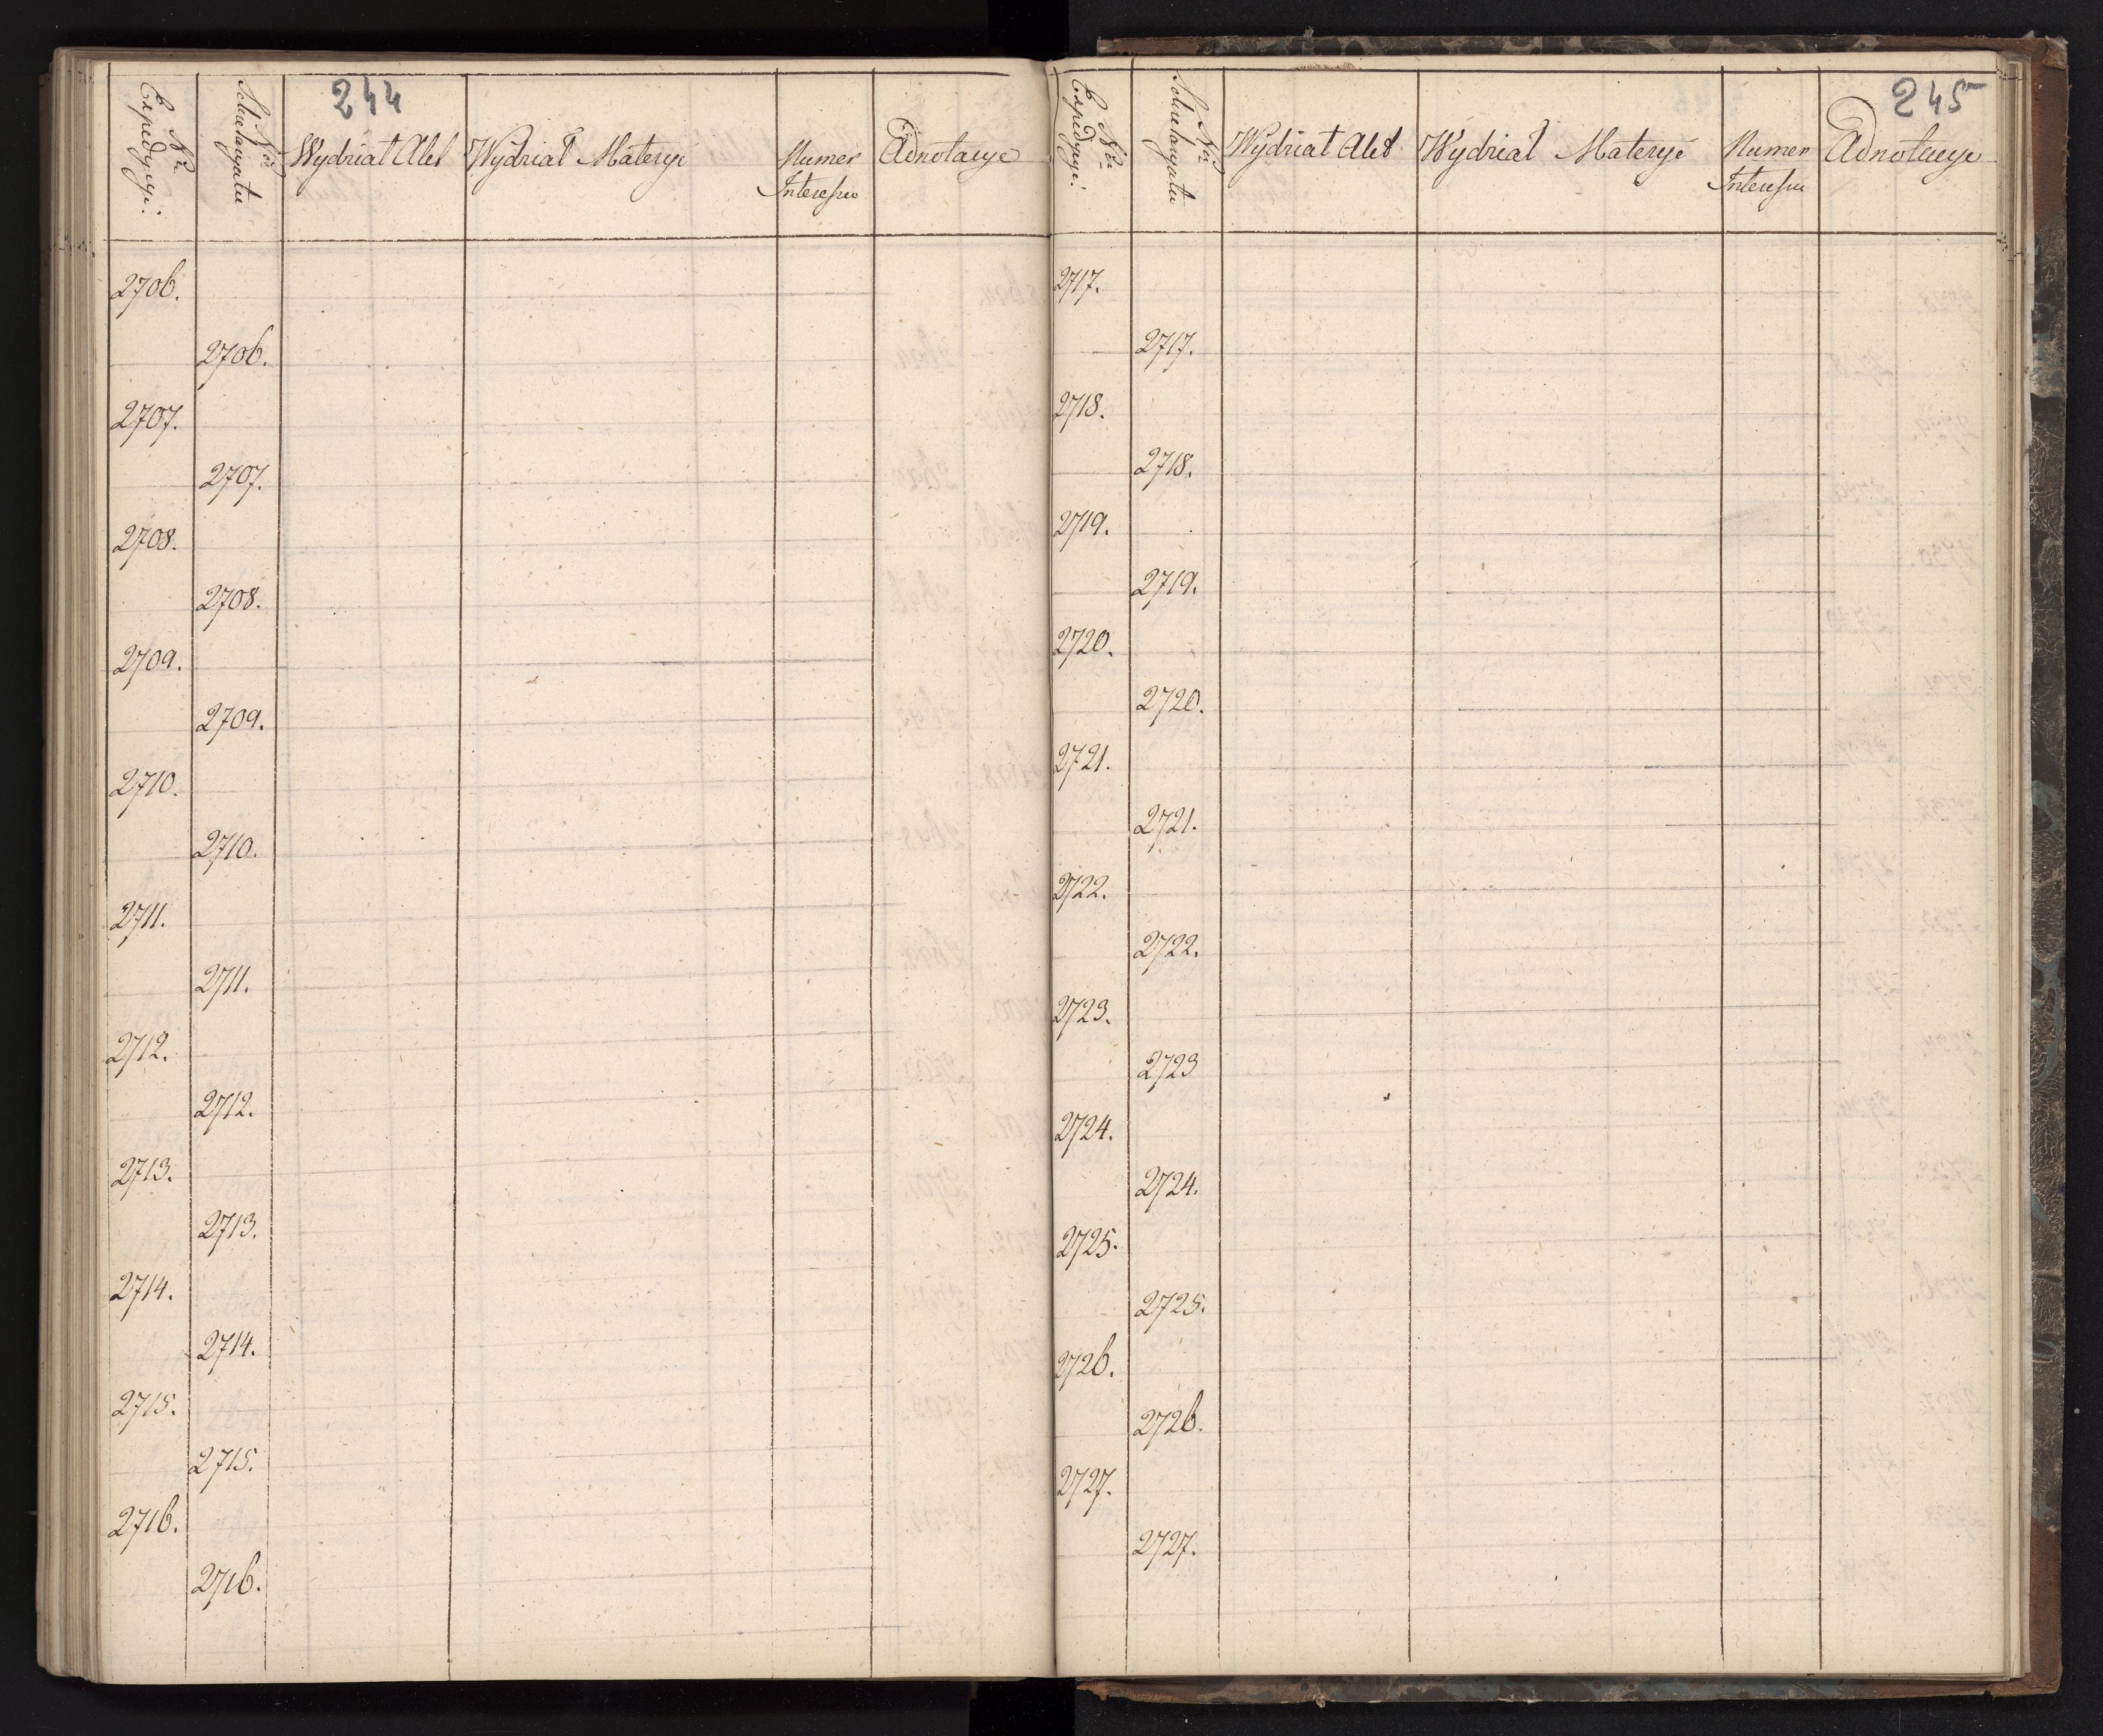 244
Nr Expedycyi:
Nr
Wydział Akt
Wydział Materyi
Numer Interessu
Adnotacye
2706.
2706.
2707.
2707.
2708.
2708.
2709.
2709.
2710.
2710.
2711.
2711.
2712.
2712.
2713.
2713.
2714.
2714.
2715.
2715.
2716.
2716.
245
Nr Expedycyi:
Nr
Wydział Akt
Wydział Materyi
Numer Interessu
Adnotacye
2717.
2717.
2718.
2718.
2719.
2719.
2720.
2720.
2721.
2721.
2722.
2722.
2723.
2723
2724.
2724.
2725.
2725.
2726.
2726.
2727.
2727.